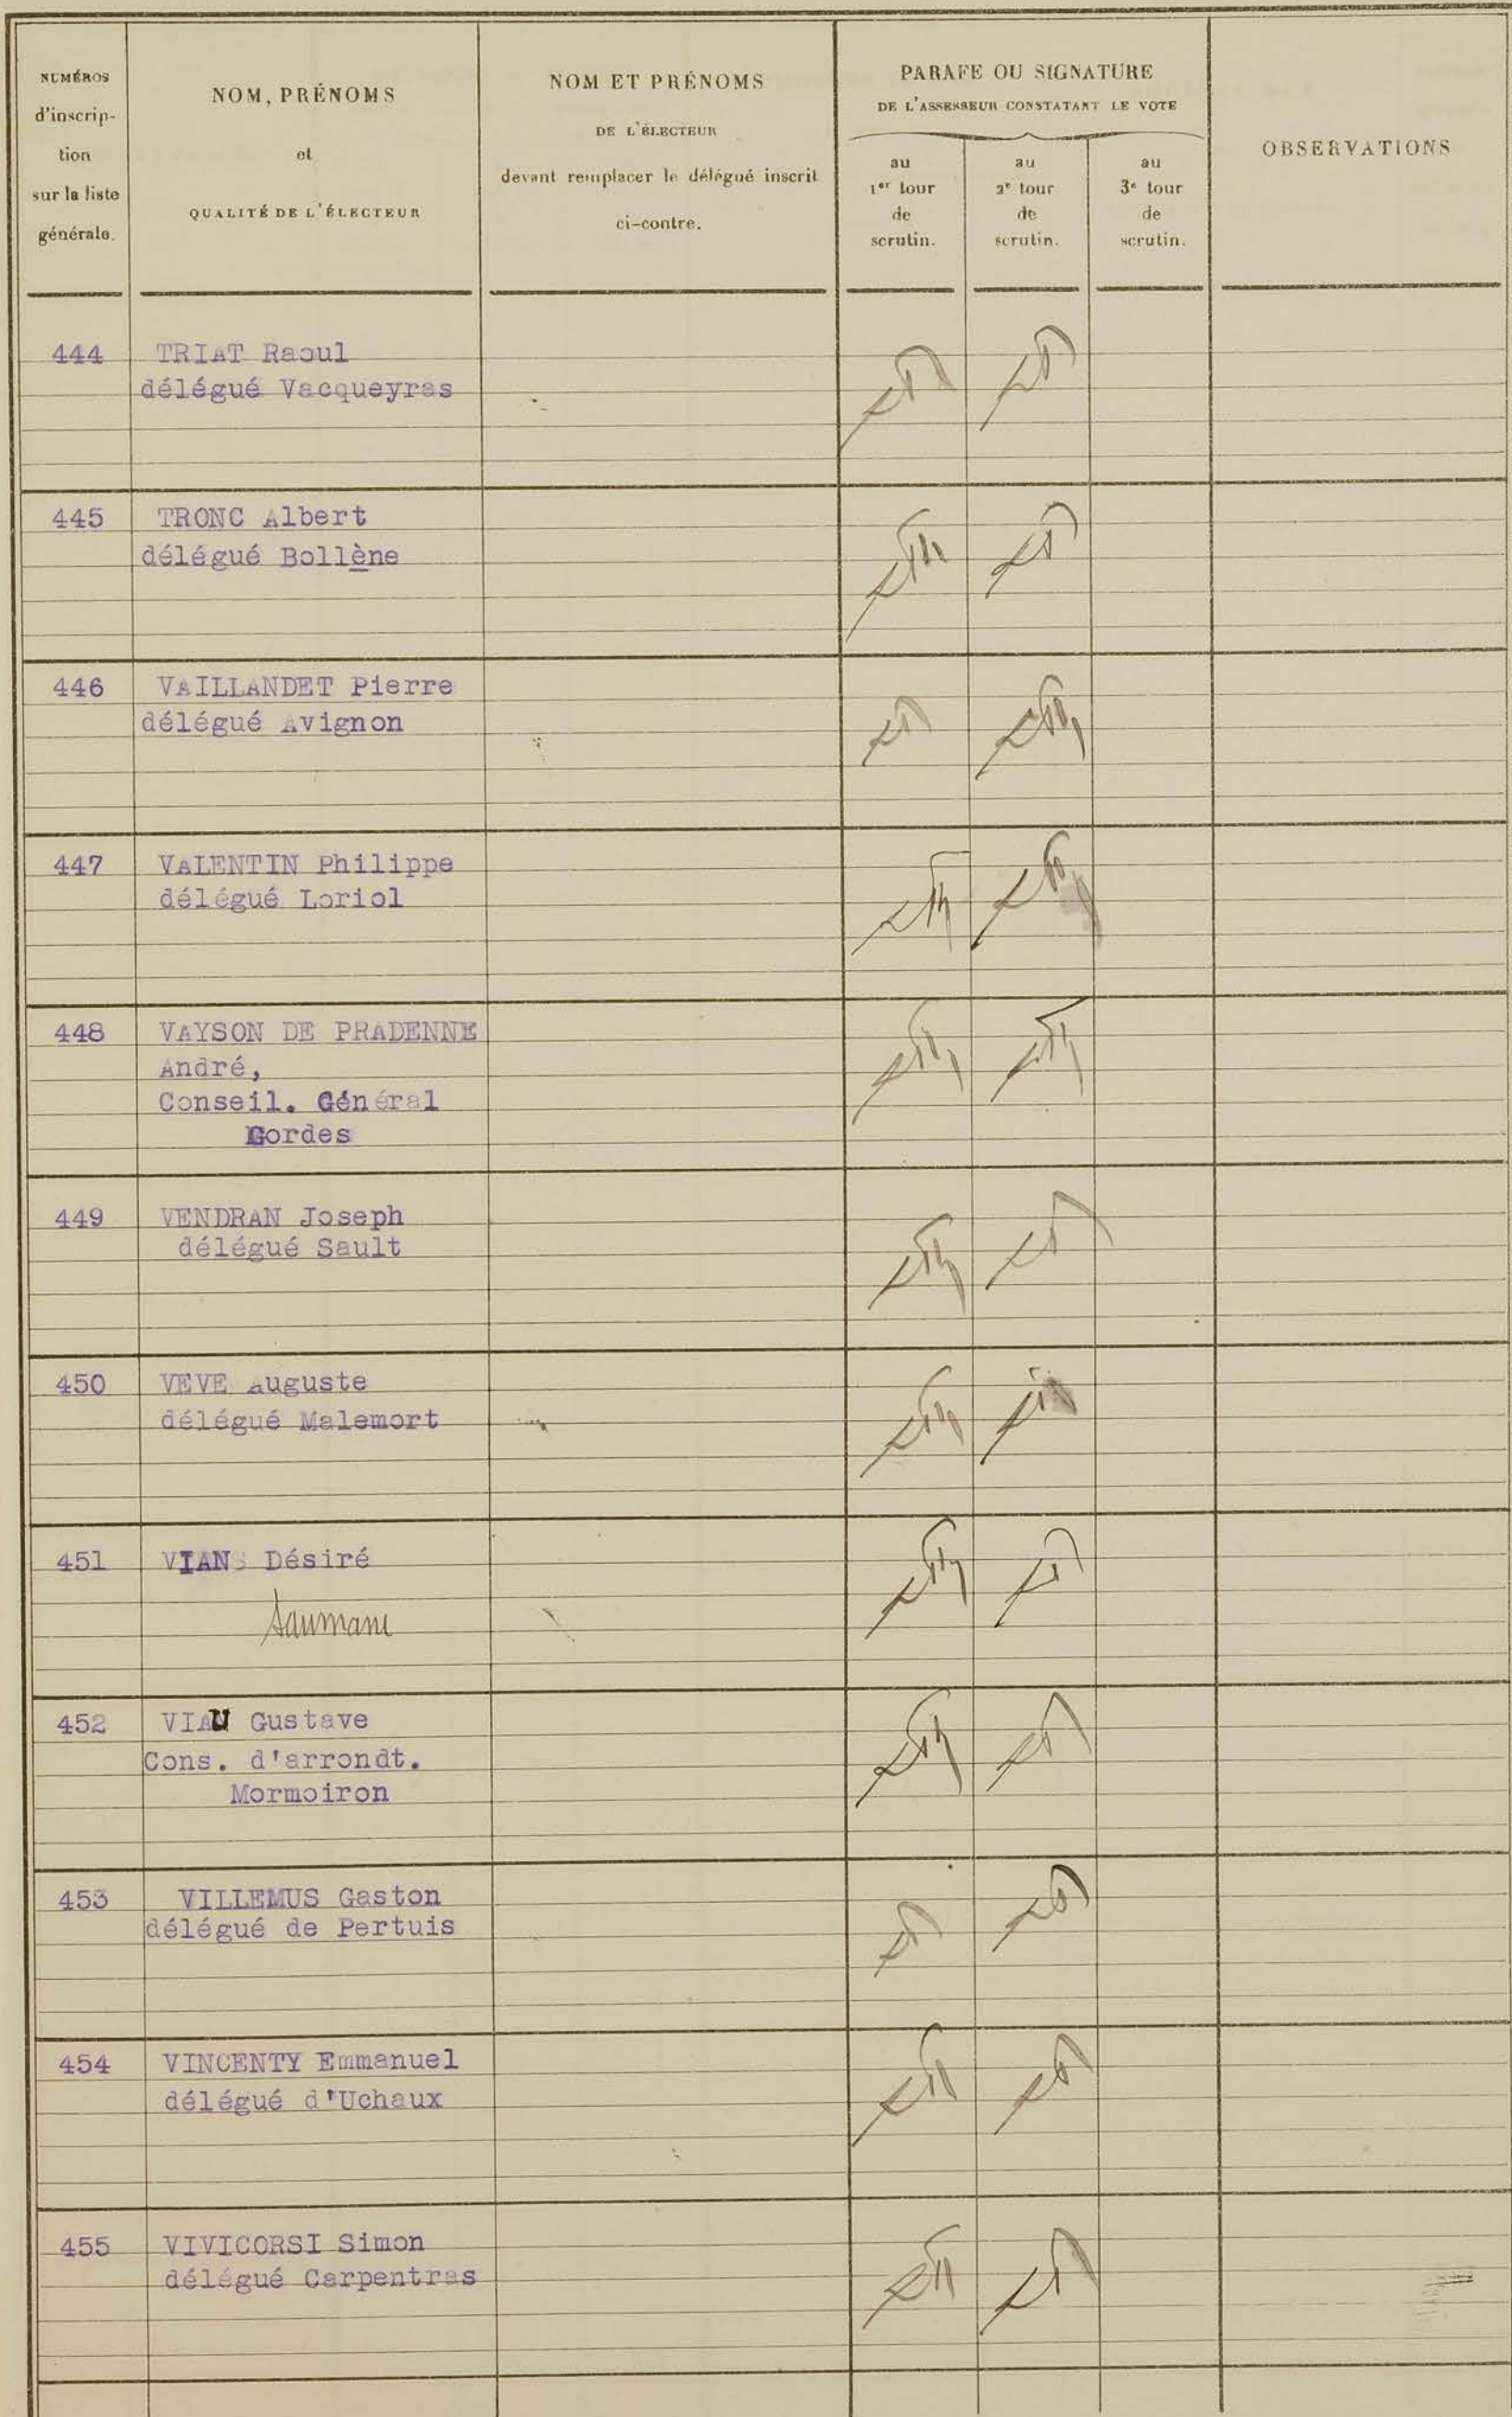 NUMÉROS
d'inscrip-
tion
sur la liste
générale.
NOM, PRÉNOMS
et
QUALITÉ DE L'ÉLECTEUR
NOM ET PRÉNOMS
DE L'ÉLECTEUR
devant remplacer le délégué inscrit
ci-contre.
PARAFE OU SIGNATURE
DE L'ASSESSEUR CONSTATANT LE VOTE
au
1er tour
de
scrutin.
au
2e tour
de
scrutin.
au
3e tour
de
scrutin.
OBSERVATIONS
444 TRIAT Raoul
délégué Vacqueyras
445 TRONC Albert
délégué Bollène
446 VAILLANDET Pierre
délégué Avignon
447 VALENTIN Philippe
délégué Loriol
448 VAYSON DE PRADENNE
André,
Conseil. Général
Gordes
449 VENDRAN Joseph
délégué Sault
450 VEVE Auguste
délégué Malemort
451 VIANS Désiré
Saumane
452 VIAU Gustave
Cons. d'arrondt.
Mormoiron
453 VILLEMUS Gaston
délégué de Pertuis
454 VINCENTY Emmanuel
délégué d'Uchaux
455 VIVICORSI Simon
délégué Carpentras